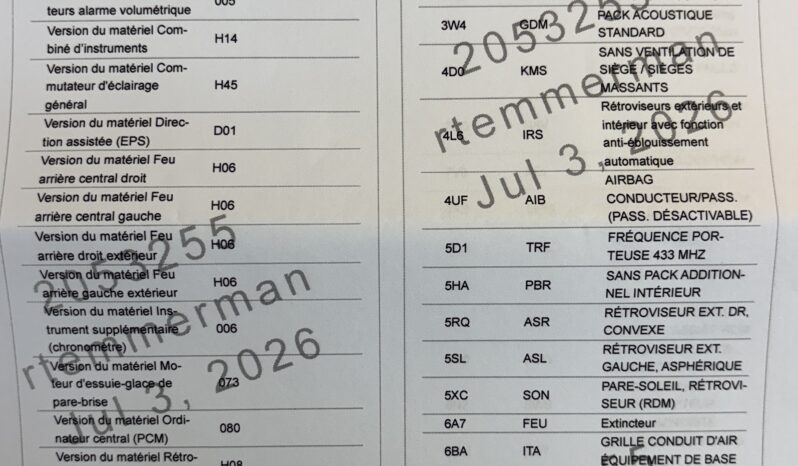 005
teurs alarme volumétrique
Version du matériel Com-
biné d'instruments
H14
Version du matériel Com-
mutateur d'éclairage
général
H45
Version du matériel Direc-
tion assistée (EPS)
D01
Version du matériel Feu
arrière central droit
H06
Version du matériel Feu
arrière central gauche
H06
Version du matériel Feu
arrière droit extérieur
H06
Version du matériel Feu
arrière gauche extérieur
H06
Version du matériel Ins-
trument supplémentaire
(chronomètre)
006
Version du matériel Mo-
teur d'essuie-glace de
pare-brise
073
Version du matériel Ordi-
nateur central (PCM)
080
Version du matériel Rétro-
H08
2053255
rtemmerman
Jul 3, 2026
3W4 GDM PACK ACOUSTIQUE
STANDARD
4D0 KMS SANS VENTILATION DE
SIÈGE / SIÈGES
MASSANTS
4L6 IRS Rétroviseurs extérieurs et
intérieur avec fonction
anti-éblouissement
automatique
4UF AIB AIRBAG
CONDUCTEUR/PASS.
(PASS. DÉSACTIVABLE)
5D1 TRF FRÉQUENCE POR-
TEUSE 433 MHZ
5HA PBR SANS PACK ADDITION-
NEL INTÉRIEUR
5RQ ASR RÉTROVISEUR EXT. DR,
CONVEXE
5SL ASL RÉTROVISEUR EXT.
GAUCHE, ASPHÉRIQUE
5XC SON PARE-SOLEIL, RÉTROVI-
SEUR (RDM)
6A7 FEU Extincteur
6BA ITA GRILLE CONDUIT D'AIR
ÉQUIPEMENT DE BASE
2053255
rtemmerman
Jul 3, 2026